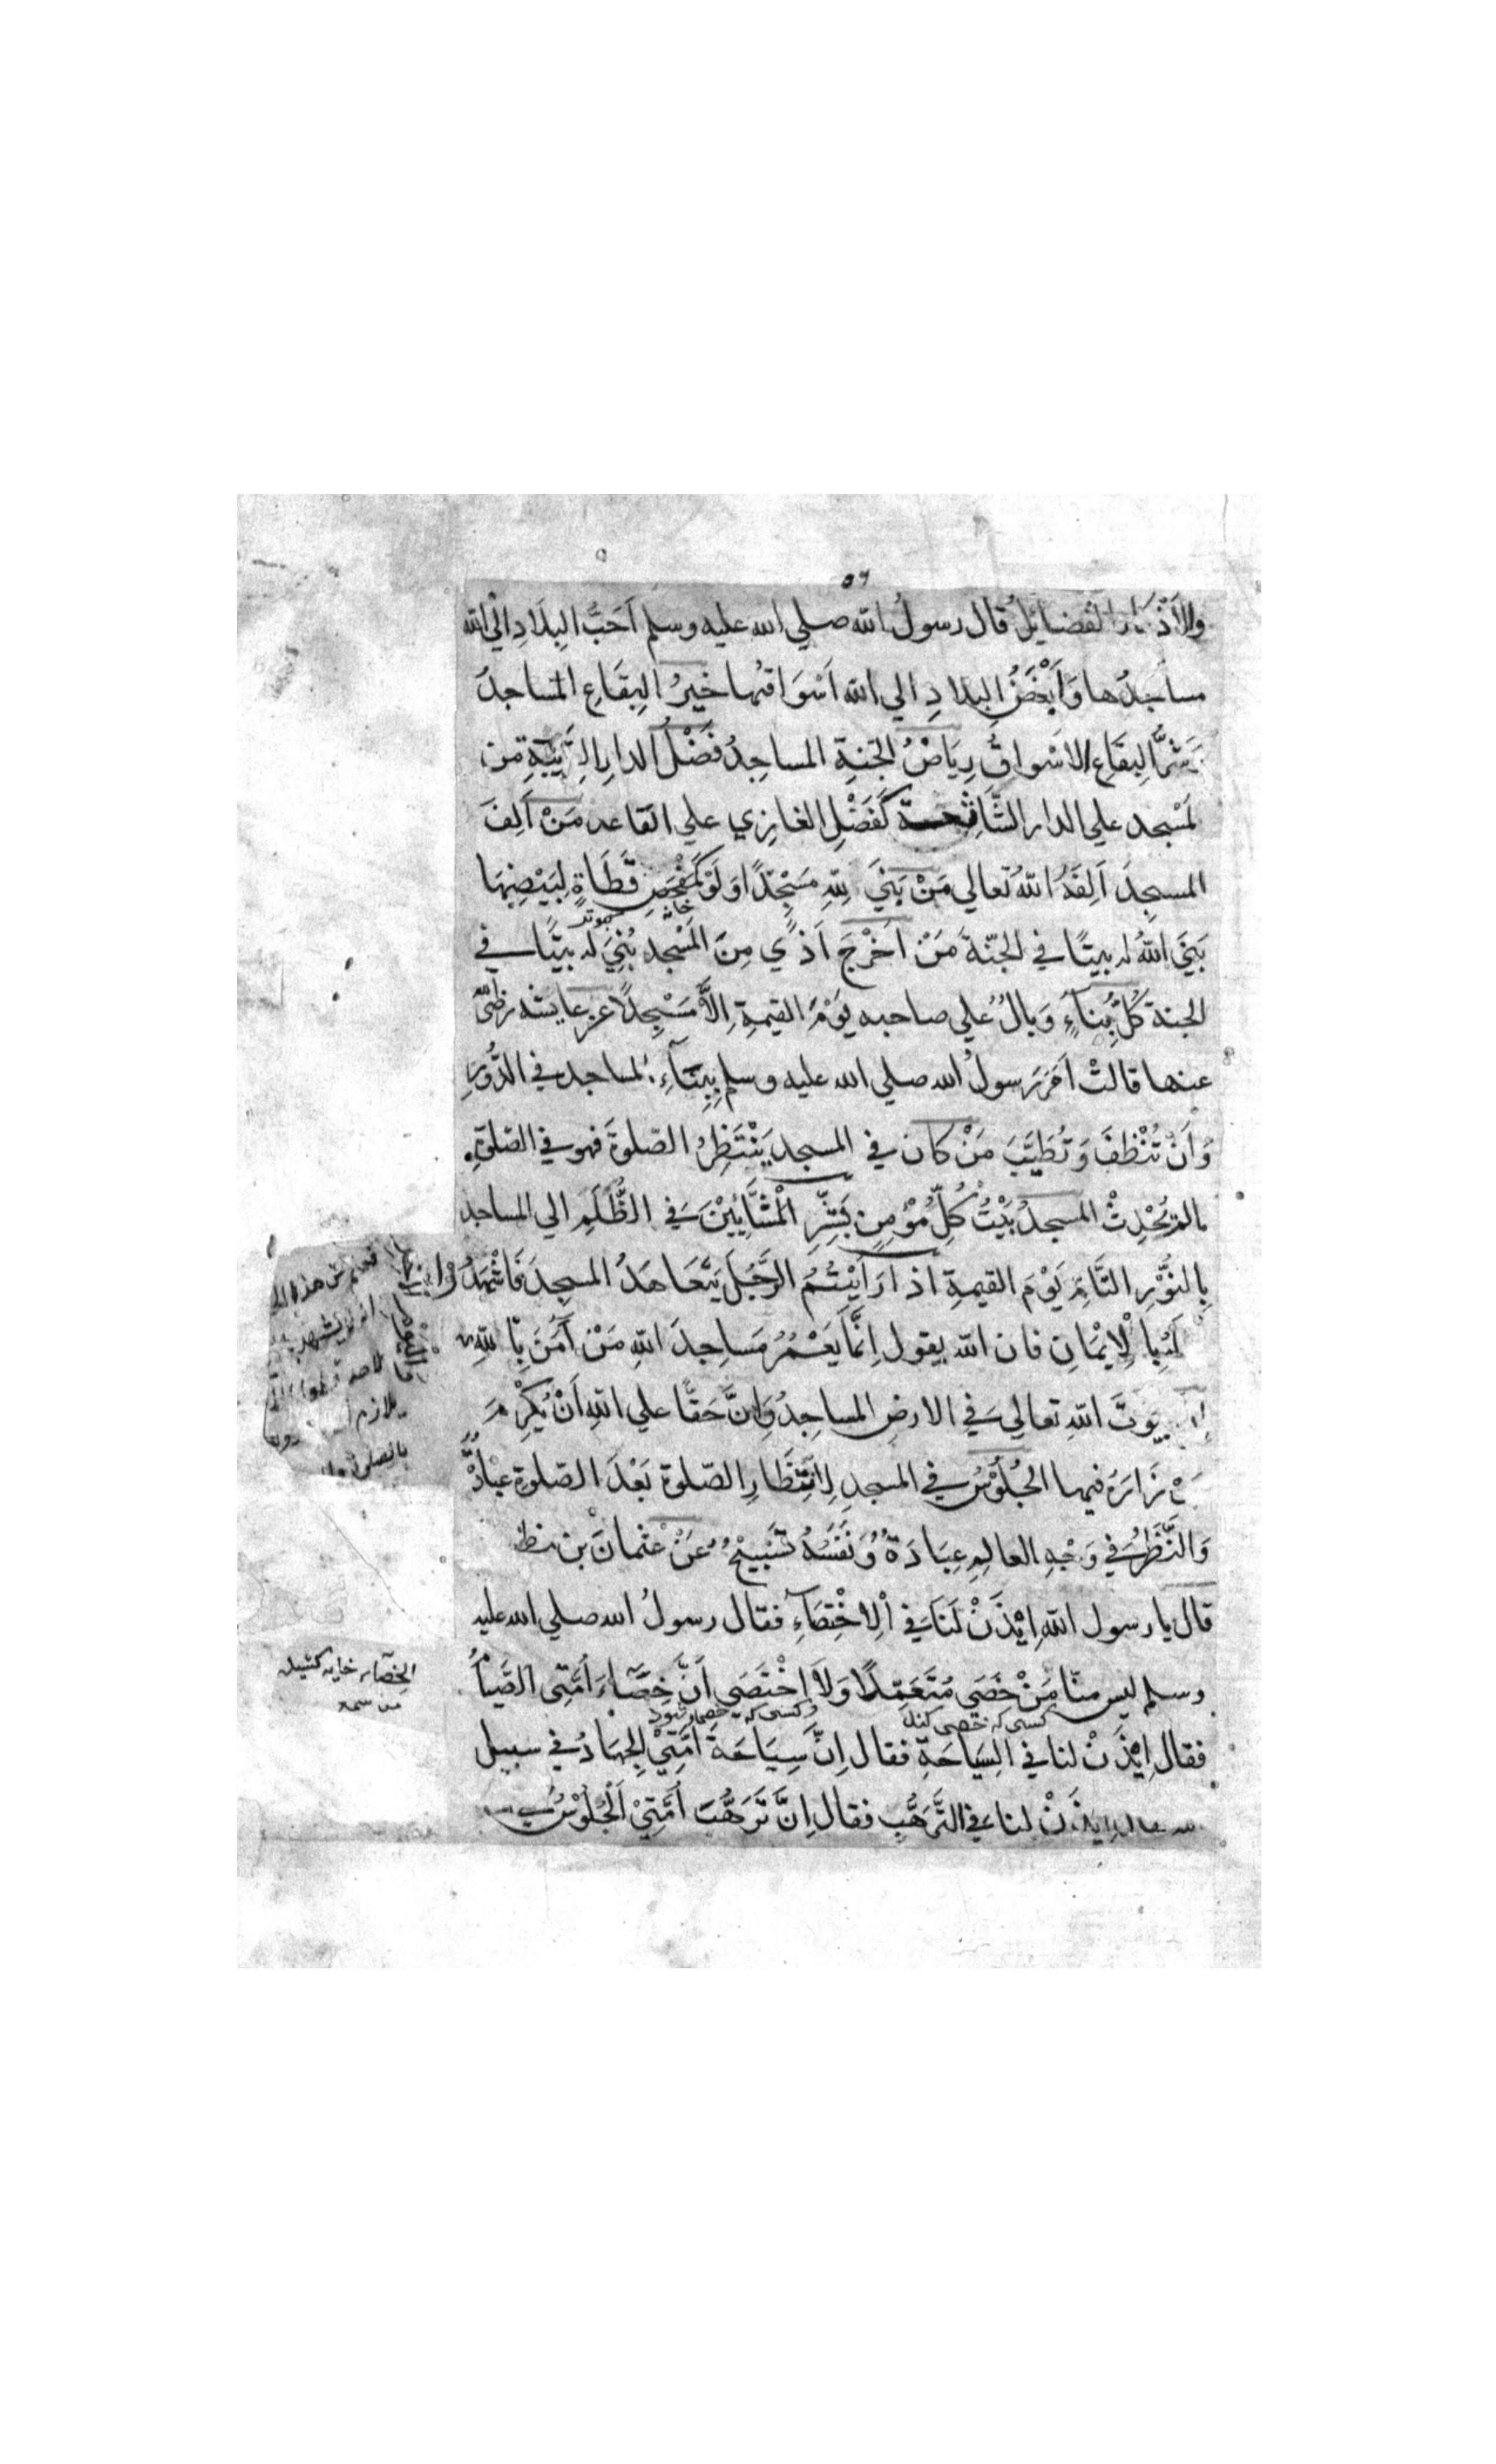 ٥٦
والاذكار الفضائل قال رسولُ الله صلي الله عليه وسلم اَحَبُّ البِلَادِ اِلَي الله
مساجدُها وَاَبْغَضُ البِلادِ الي الله اَسْوَاقُها خَيرُ البِقَاعِ المساجدُ
شَرُّ البِقَاعِ الاَسْواقُ رِيَاضُ الجَنةِ المساجِدُ فَضْلُ الدارِ القَرِيبَةِ من
لَمسْجد علي الدار الشَّاسِعة كَفَضْلِ الغازِي علي القاعد مَنْ اَلِفَ
المسجِدَ اَلِفَهُ اللهُ تعالي مَنْ بَنَي لِلّهِ مَسْجِدًا وَلَوْ كَمَفْحَصِ قَطَاةٍ لِبَيْضِهَا
خانه
بَنَي اللهُ له بيتًا في الجنّة مَنْ اَخْرَجَ اَذًي مِنَ المَسْجد بُنِيَ له بيتًا في
الجنة كُلُّ بِنَاءٍ وَبالٌ علي صاحبه يَوْمَ القيمةِ اِلَّا مَسْجِدًا عن عايشه رضي الله
عنها قالتْ اَمَرَ رسولُ الله صلي الله عليه وسلم بِبِنَآءِ المساجد في الدُّورِ
وَاَنْ تُنْظَفَ وَتُطَيَّبَ مَنْ كان في المسجد يَنْتَظِرُ الصّلوةَ فهو في الصّلوة
مالم يُحْدِثْ المسجدُ بَيْتُ كُلِّ مُؤْمِنٍ بَشِّرِ الْمَشَّايِيْنَ في الظُّلَمِ الي المساجد
بِالنُّوْرِ التَّامِّ يَوْمَ القيمةِ اذا رَاَيْتُمُ الرَّجُلَ يَتَعَاهَدُ المسجِدَ فَاشْهَدُوْا
لَهُ بِالْاِيْمَانِ فان الله يقول اِنَّمَا يَعْمُرُ مَساجِدَ اللهِ مَنْ آمَنَ بِاللهِ
اِنَّ بيوتَ اللهِ تعالي في الارضِ المساجِدُ وَاِنَّ حَقًّا علي اللهِ اَنْ يُكْرِمَ
مَنْ زَارَهُ فيها الجُلُوْسُ في المسجدِ لِانْتِظَارِ الصّلوة بَعْدَ الصّلوةِ عِبَادَةٌ
وَالنَّظَرُ في وَجْهِ العالِمِ عِبَادَةٌ وَنَفَسُهُ تَسْبِيحٌ عَنْ عُثمانَ بن مظ
قال يا رسول الله اِيْذَنْ لَنَا في الْاِخْتِصَاءِ فقال رسولُ الله صلي الله عليه
وسلم ليس منّا مَنْ خَصَي مُتَعَمِّدًا وَلَا اخْتَصَي اَنَّ خِصَاءَ اُمَّتِي الصِّيَامُ
كسي كه خصي كند
و كسي كه خصي شود
فقال اِيْذَنْ لنا في السِيَاحَةِ فقال اِنَّ سِيَاحَةَ اُمَّتِيْ الجِهَادُ في سبيل
الله فقال اِيْذَنْ لنا في التَّرَهُّبِ فقال اِنَّ تَرَهُّبَ اُمَّتِيْ الْجُلُوْسُ في
الخصاء خايه كشيدن